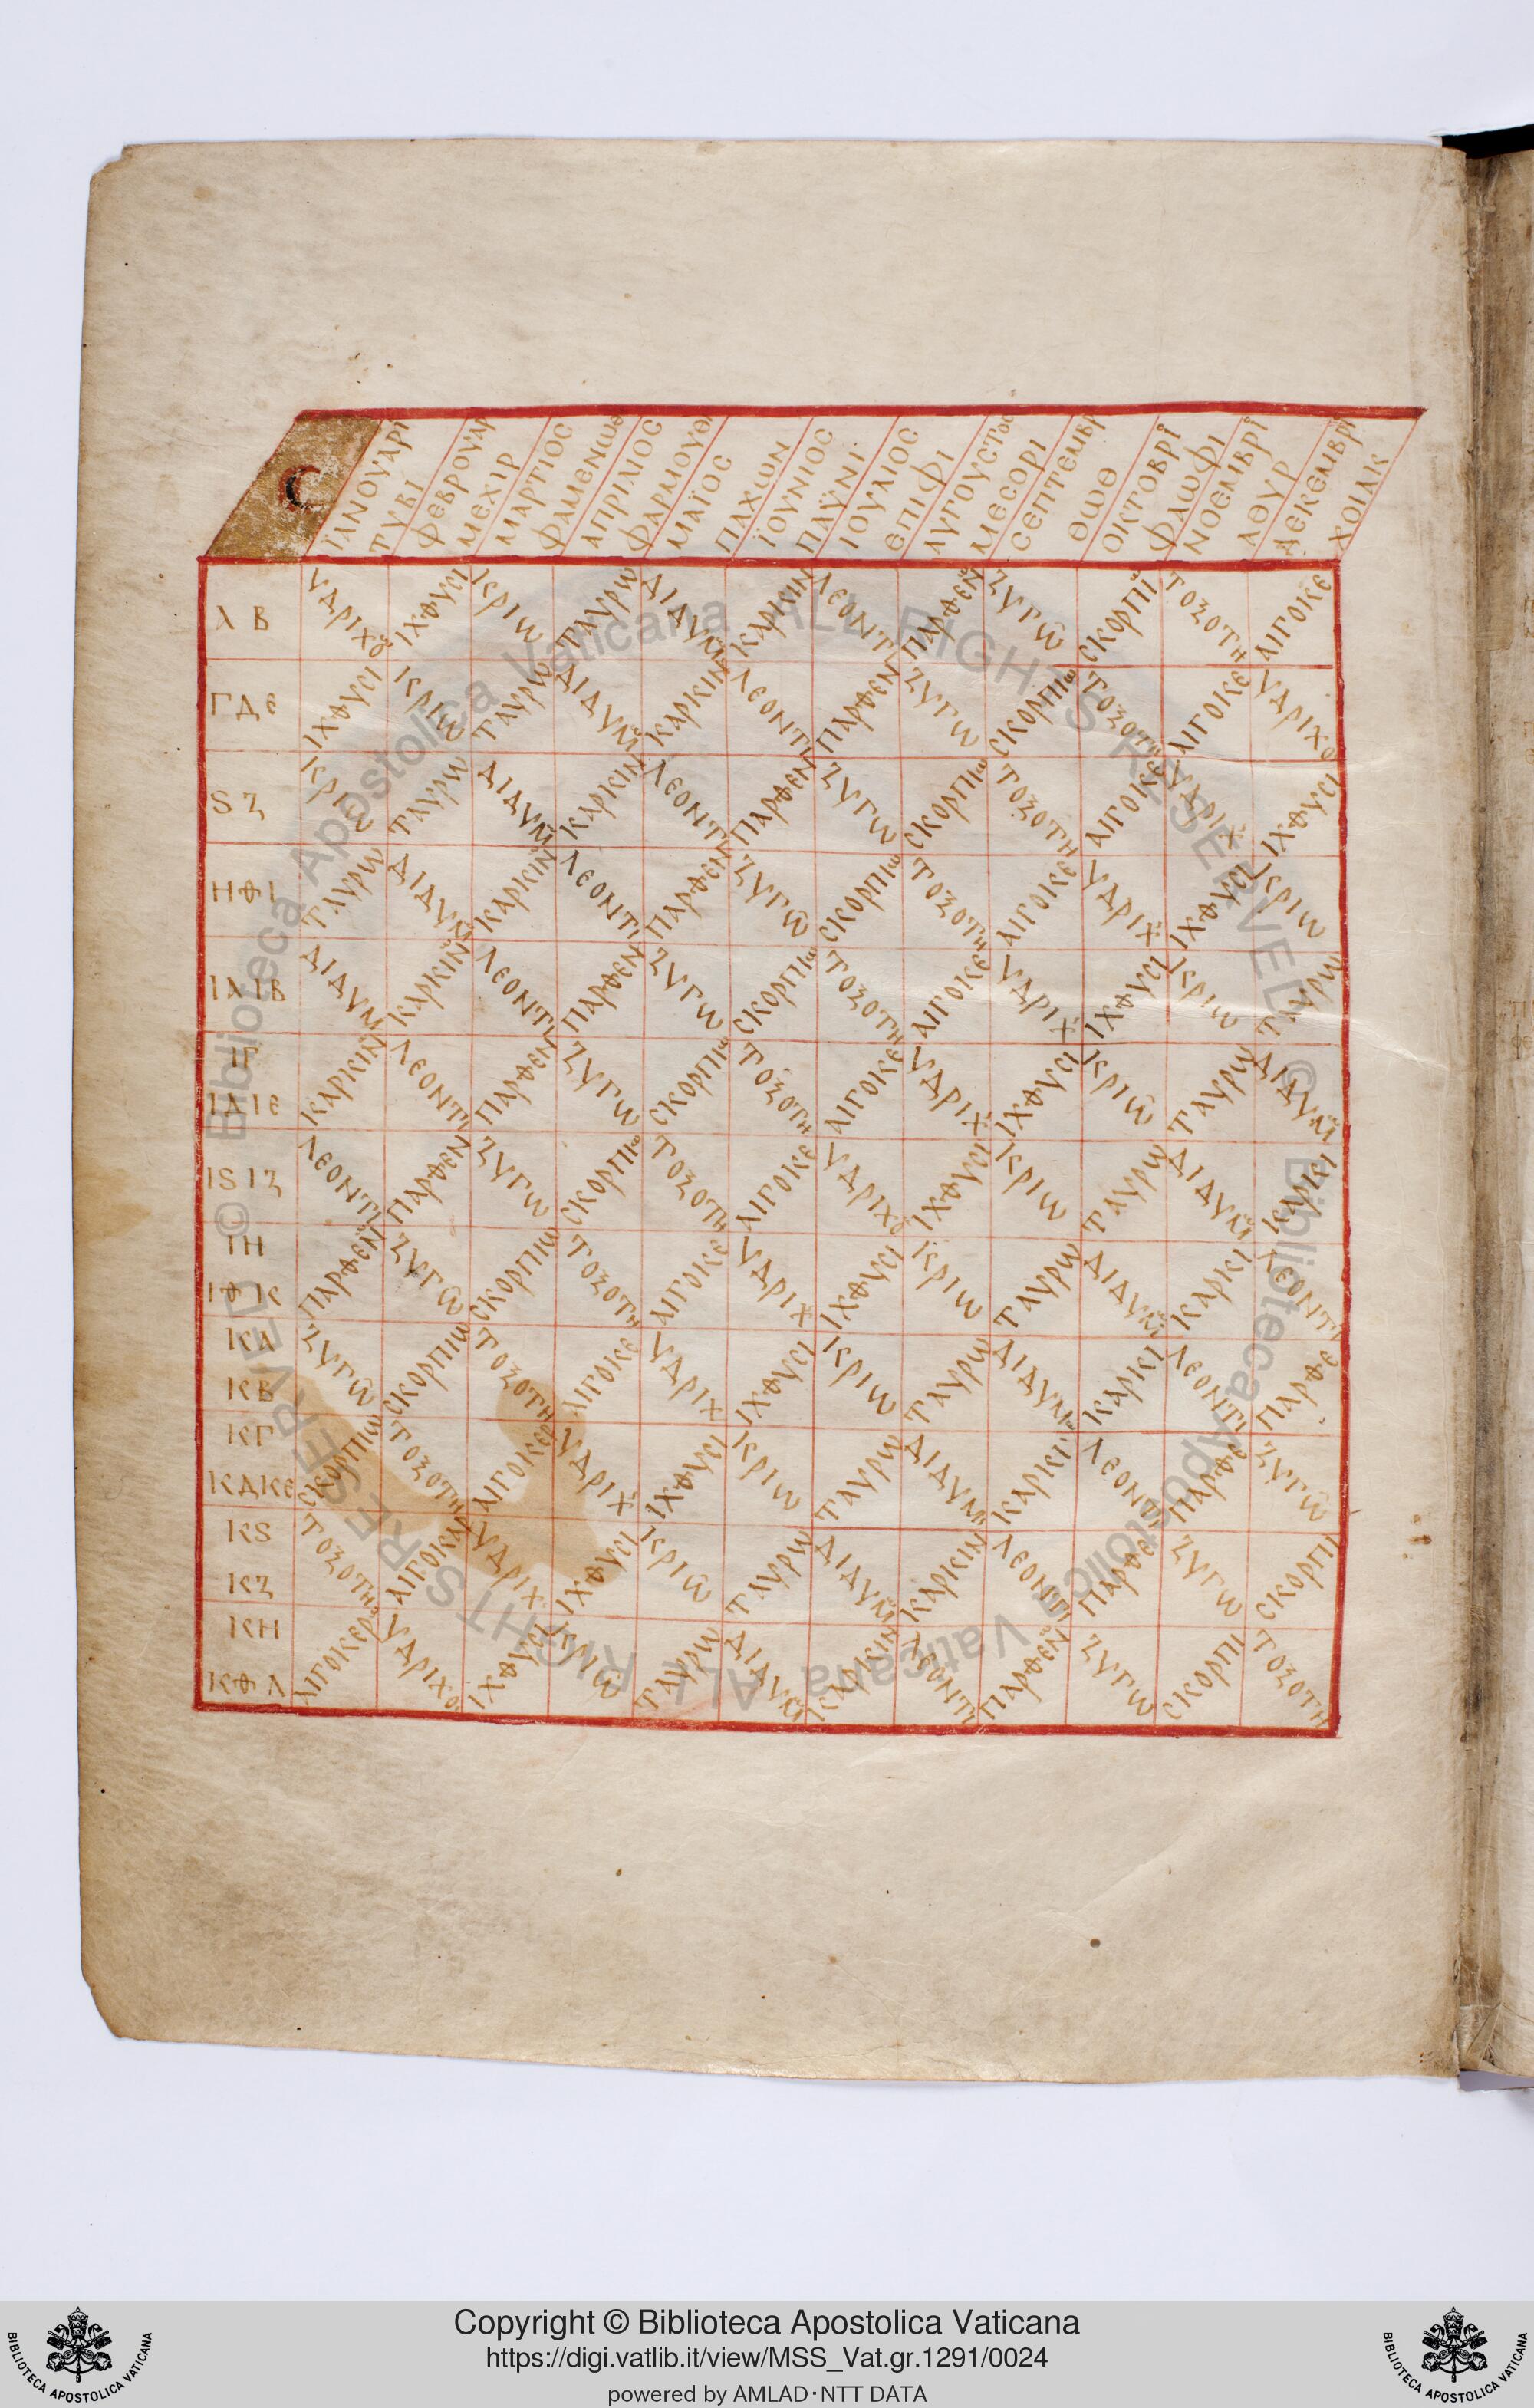 ΪΑΝΟΥΑΡΙ ΤΥΒΙ ΦΕΒΡΟΥΑΡ ΜΕΧΙΡ ΜΑΡΤΙΟC ΦΑΜΕΝѠΘ ΑΠΡΙΛΙΟC ΦΑΡΜΟΥΘ ΜΑΪΟC ΠΑΧѠΝ ΪΟΥΝΙΟC ΠΑΫΝΙ ΙΟΥΛΙΟC ΕΠΙΦΙ ΑΥΓΟΥCΤΟC ΜΕCΟΡΙ CΕΠΤΕΜΒΡ ΘѠΘ ΟΚΤΟΒΡΙ ΦΑѠΦΙ ΝΟΕΜΒΡΙ ΑΘΥΡ ΔΕΚΕΜΒΡΙ ΧΟΙΑΚ
Α Β ΥΔΡΙΧΟ ΙΧΘΥCΙ ΚΡΙѠ ΤΑΥΡѠ ΔΙΔΥΜ ΚΑΡΚΙΝ ΛΕΟΝΤ ΠΑΡΘΕΝ ΖΥΓѠ CΚΟΡΠΙ ΤΟΞΟΤΗ ΑΙΓΟΚΕ
Γ Δ Ε ΙΧΘΥCΙ ΚΡΙѠ ΤΑΥΡѠ ΔΙΔΥΜ ΚΑΡΚΙΝ ΛΕΟΝΤΙ ΠΑΡΘΕΝ ΖΥΓѠ CΚΟΡΠΙѠ ΤΟΞΟΤΗ ΑΙΓΟΚΕ ΥΔΡΙΧΟ
Ϛ Ζ ΚΡΙѠ ΤΑΥΡѠ ΔΙΔΥΜ ΚΑΡΚΙΝ ΛΕΟΝΤ ΠΑΡΘΕΝ ΖΥΓѠ CΚΟΡΠΙѠ ΤΟΞΟΤΗ ΑΙΓΟΚΕ ΥΔΡΙΧ ΙΧΘΥCΙ
Η Θ Ι ΤΑΥΡѠ ΔΙΔΥΜ ΚΑΡΚΙΝ ΛΕΟΝΤΙ ΠΑΡΘΕΝ ΖΥΓѠ CΚΟΡΠΙѠ ΤΟΞΟΤΗ ΑΙΓΟΚΕ ΥΔΡΙΧ ΙΧΘΥCΙ ΚΡΙѠ
ΙΑ ΙΒ ΔΙΔΥΜ ΚΑΡΚΙΝ ΛΕΟΝΤΙ ΠΑΡΘΕΝ ΖΥΓѠ CΚΟΡΠΙѠ ΤΟΞΟΤΗ ΑΙΓΟΚΕ ΥΔΡΙΧ ΙΧΘΥCΙ ΚΡΙѠ ΤΑΥΡѠ
ΙΓ
ΙΔ ΙΕ ΚΑΡΚΙΝ ΛΕΟΝΤΙ ΠΑΡΘΕΝ ΖΥΓѠ CΚΟΡΠΙѠ ΤΟΞΟΤΗ ΑΙΓΟΚΕ ΥΔΡΙΧ ΙΧΘΥCΙ ΚΡΙѠ ΤΑΥΡѠ ΔΙΔΥΜ
ΙϚ ΙΖ ΛΕΟΝΤΙ ΠΑΡΘΕΝ ΖΥΓѠ CΚΟΡΠΙѠ ΤΟΞΟΤΗ ΑΙΓΟΚΕ ΥΔΡΙΧΟ ΙΧΘΥCΙ ΚΡΙѠ ΤΑΥΡѠ ΔΙΔΥΜ ΚΑΡΚΙ
ΙΗ
ΙΘ Κ ΠΑΡΘΕΝ ΖΥΓѠ CΚΟΡΠΙѠ ΤΟΞΟΤΗ ΑΙΓΟΚΕ ΥΔΡΙΧ ΙΧΘΥCΙ ΚΡΙѠ ΤΑΥΡѠ ΔΙΔΥΜ ΚΑΡΚΙ ΛΕΟΝΤΙ
ΚΑ
ΚΒ ΖΥΓѠ CΚΟΡΠΙѠ ΤΟΞΟΤΗ ΑΙΓΟΚΕ ΥΔΡΙΧ ΙΧΘΥCΙ ΚΡΙѠ ΤΑΥΡѠ ΔΙΔΥΜ ΚΑΡΚΙ ΛΕΟΝΤΙ ΠΑΡΘΕ
ΚΓ
ΚΔ ΚΕ CΚΟΡΠΙѠ ΤΟΞΟΤΗ ΑΙΓΟΚΕΡ ΥΔΡΙΧ ΙΧΘΥCΙ ΚΡΙѠ ΤΑΥΡѠ ΔΙΔΥΜ ΚΑΡΚΙ ΛΕΟΝΤΙ ΠΑΡΘΕ ΖΥΓѠ
ΚϚ
ΚΖ ΤΟΞΟΤΗ ΑΙΓΟΚΑΡ ΥΔΡΙΧ ΙΧΘΥCΙ ΚΡΙѠ ΤΑΥΡѠ ΔΙΔΥΜ ΚΑΡΚΙΝ ΛΕΟΝΤΙ ΠΑΡΘΕ ΖΥΓѠ CΚΟΡΠΙ
ΚΗ
ΚΘ Λ ΑΙΓΟΚΕΡ ΥΔΡΙΧΟ ΙΧΘΥCΙ ΚΡΙѠ ΤΑΥΡѠ ΔΙΔΥΜ ΚΑΡΚΙΝ ΛΕΟΝΤΙ ΠΑΡΘΕΝ ΖΥΓѠ CΚΟΡΠΙ ΤΟΞΟΤΗ
© Biblioteca Apostolica Vaticana ALL RIGHTS RESERVED © Biblioteca Apostolica Vaticana ALL RIGHTS RESERVED
Copyright © Biblioteca Apostolica Vaticana
https://digi.vatlib.it/view/MSS_Vat.gr.1291/0024
powered by AMLAD·NTT DATA
BIBLIOTECA APOSTOLICA VATICANA
BIBLIOTECA APOSTOLICA VATICANA